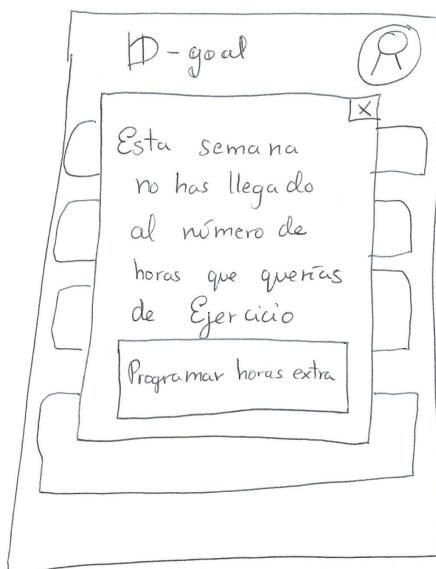 D-goal
X
Esta semana
no has llegado
al número de
horas que querías
de Ejercicio
Programar horas extra